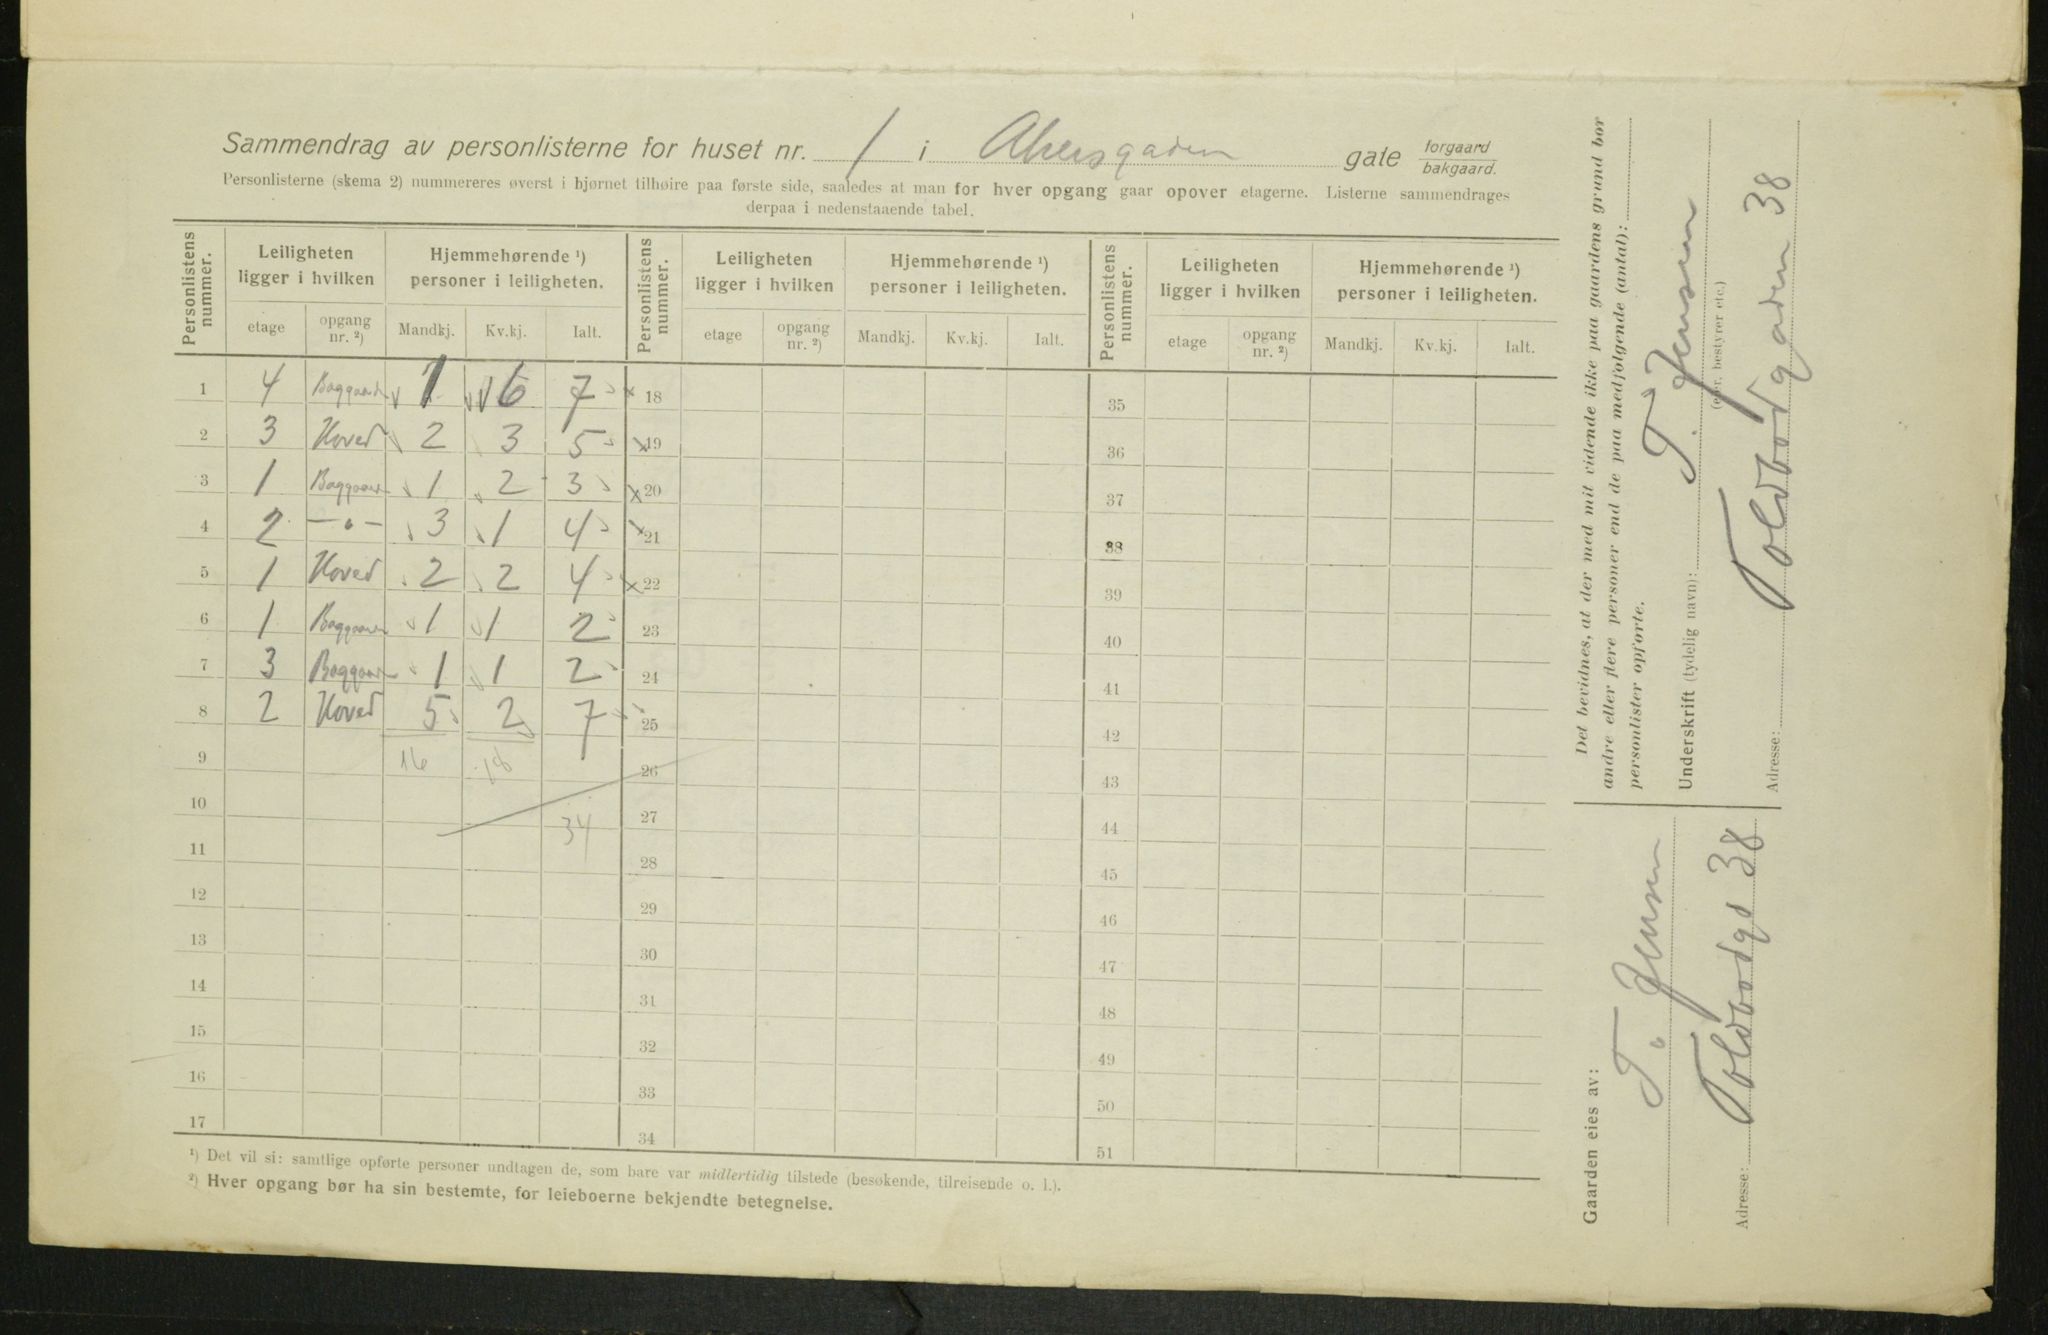 Sammendrag av personlisterne for huset nr. 1 i Akersgaden gate forgaard bakgaard.
Personlisterne (skema 2) nummereres øverst i hjørnet tilhøire paa første side, saaledes at man for hver opgang gaar opover etagerne. Listerne sammendrages
derpaa i nedenstaaende tabel.
Personlistens nummer. Leiligheten ligger i hvilken Hjemmehørende ¹) personer i leiligheten. Personlistens nummer. Leiligheten ligger i hvilken Hjemmehørende ¹) personer i leiligheten. Personlistens nummer. Leiligheten ligger i hvilken Hjemmehørende ¹) personer i leiligheten.
etage opgang nr. ²) Mandkj. Kv.kj. Ialt. etage opgang nr. ²) Mandkj. Kv.kj. Ialt. etage opgang nr. ²) Mandkj. Kv.kj. Ialt.
1 4 Baggaard 1 6 7 18 35
2 3 Hoved 2 3 5 19 36
3 1 Baggaard 1 2 3 20 37
4 2 —"— 3 1 4 21 38
5 1 Hoved 2 2 4 22 39
6 1 Baggaard 1 1 2 23 40
7 3 Baggaard 1 1 2 24 41
8 2 Hoved 5 2 7 25 42
9 16 18 26 43
10 34 27 44
11 28 45
12 29 46
13 30 47
14 31 48
15 32 49
16 33 50
17 34 51
¹) Det vil si: samtlige opførte personer undtagen de, som bare var midlertidig tilstede (besøkende, tilreisende o. l.).
²) Hver opgang bør ha sin bestemte, for leieboerne bekjendte betegnelse.
Det bevidnes, at der med mit vidende ikke paa gaardens grund bor
andre eller flere personer end de paa medfølgende (antal):
personlister opførte.
Underskrift (tydelig navn): T. Jensen
(eier, bestyrer etc.)
Adresse: Toldbodgaden 38
Gaarden eies av: T. Jensen
Adresse: Toldbodgd 38